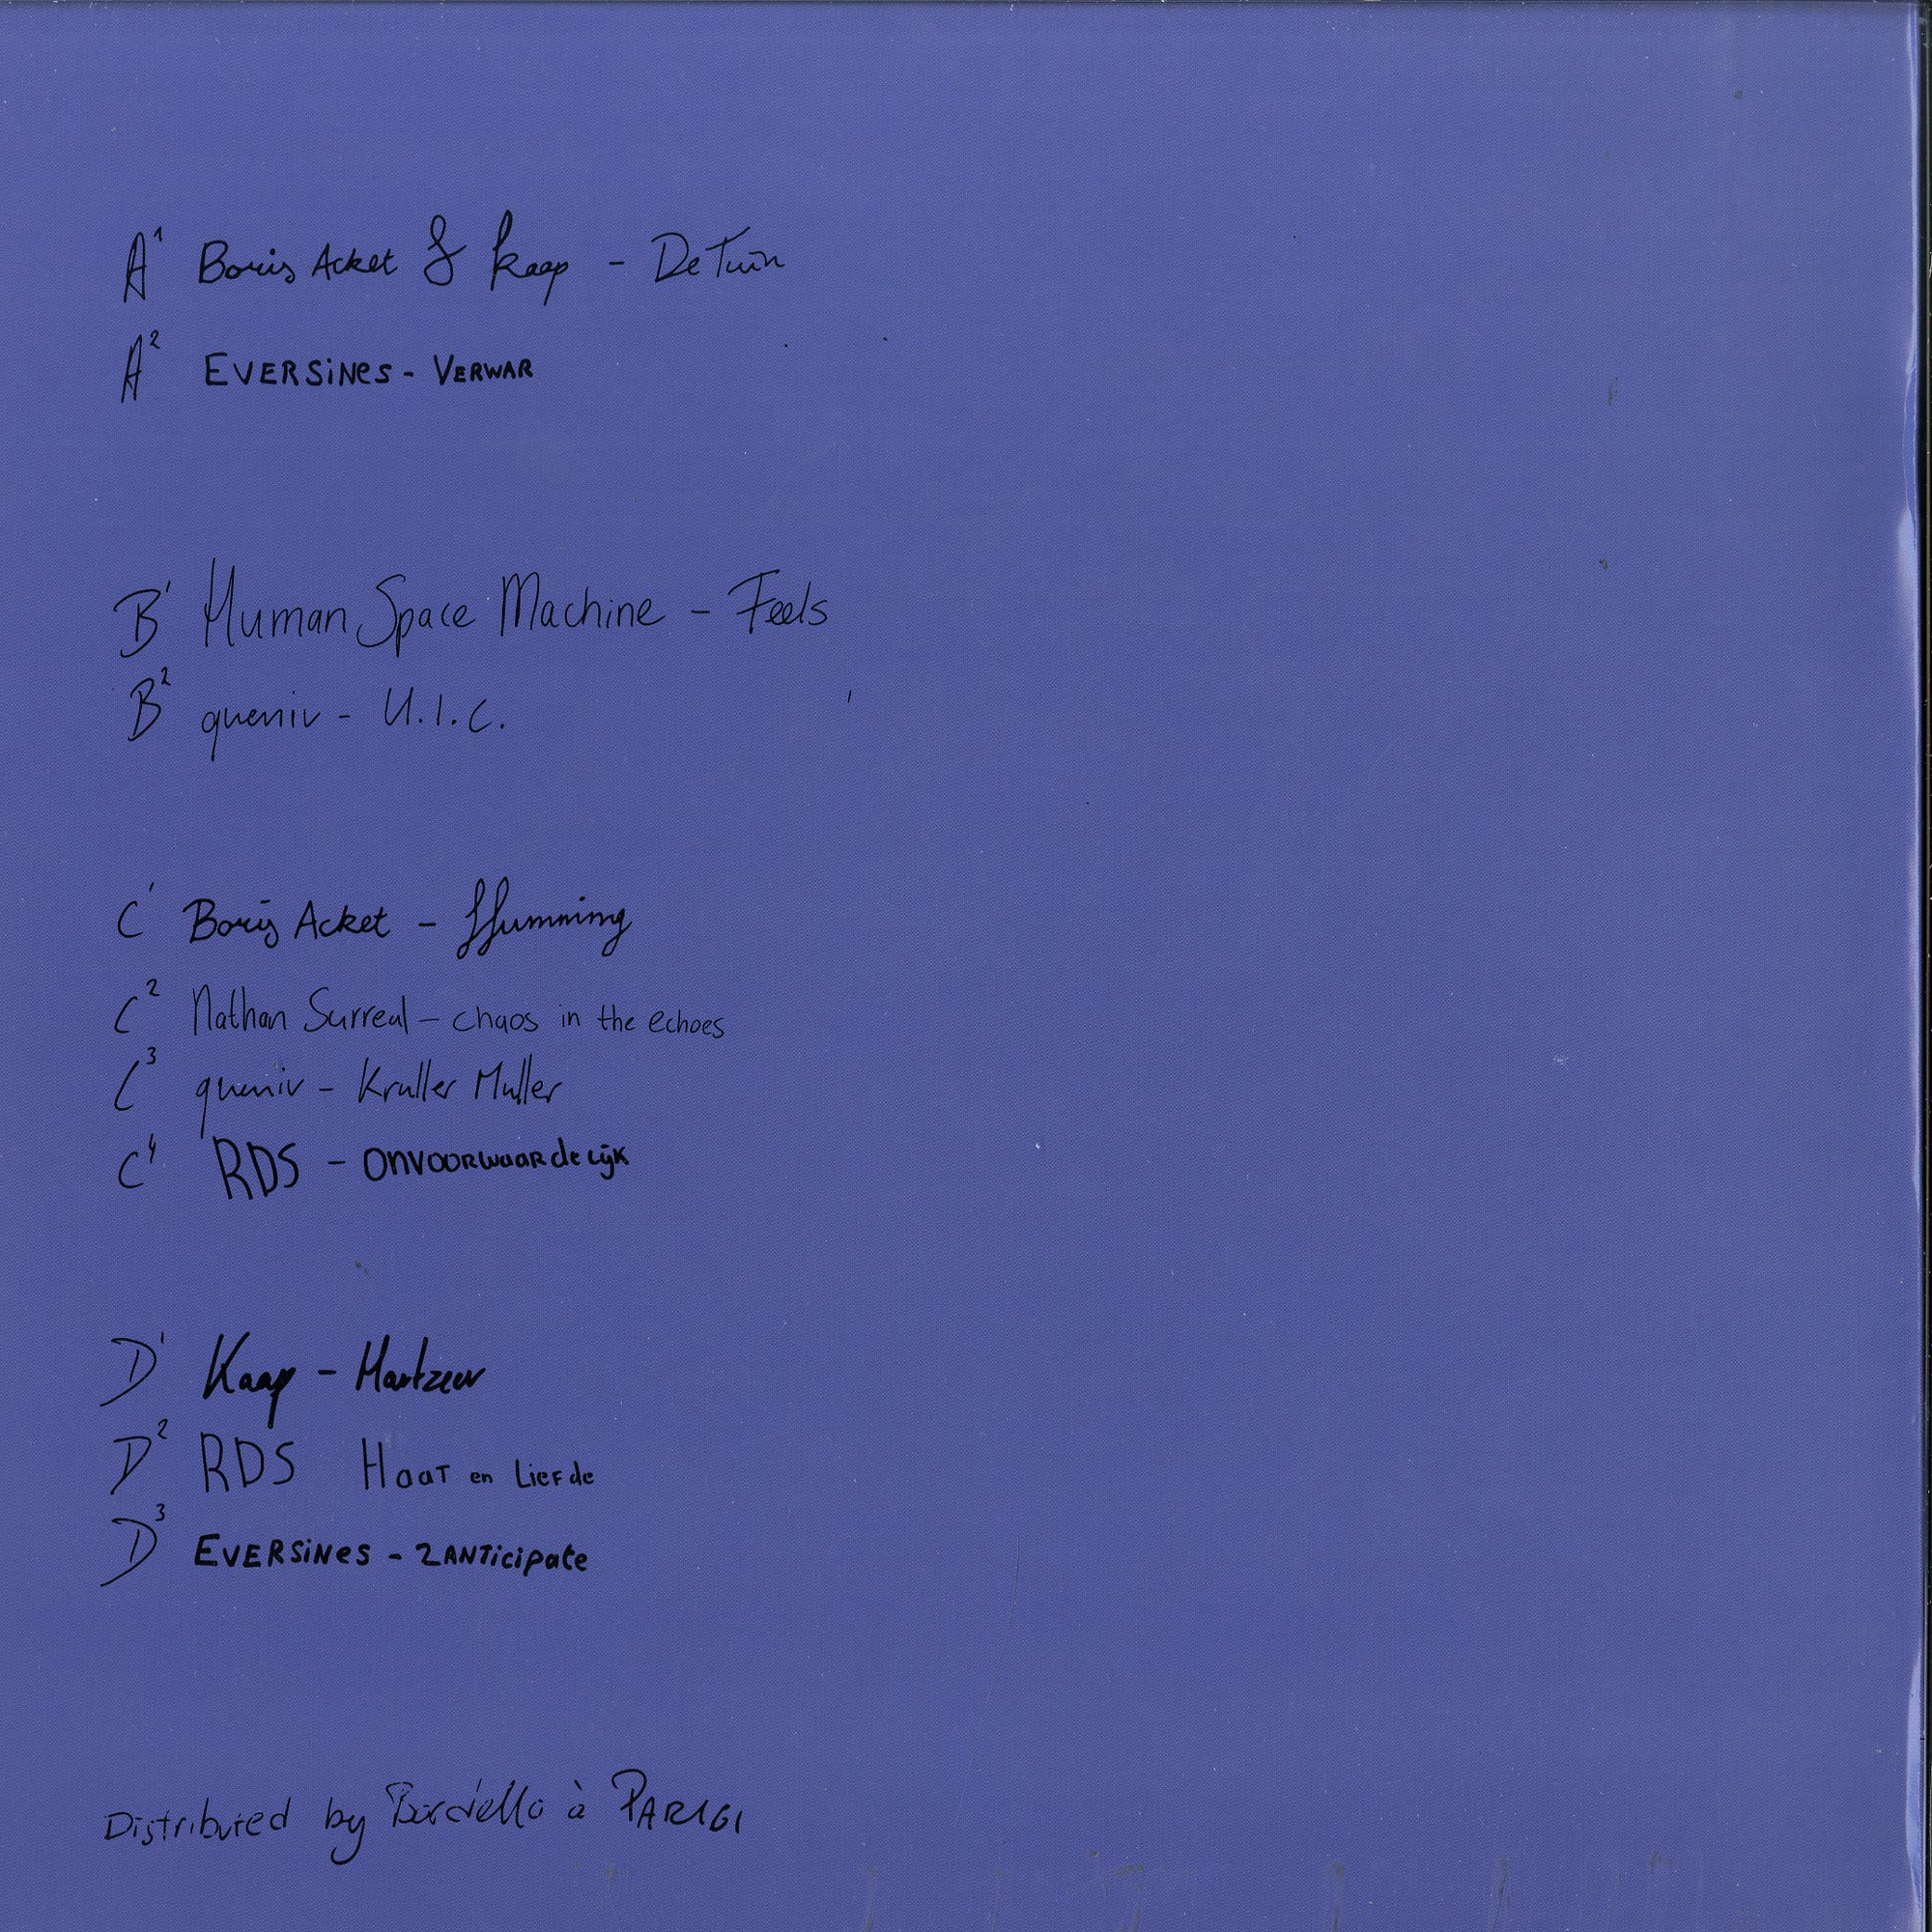 A¹ Boris Acket & Kaap - De Tuin
A² EVERSiNeS - VERWAR
B¹ Human Space Machine - Feels
B² queniv - U.I.C.
C¹ Boris Acket - Humming
C² Nathan Surreal - chaos in the echoes
C³ queniv - Kruller Muller
C⁴ RDS - Onvoorwaardelijk
D¹ Kaap - Hartzeer
D² RDS Haat en Liefde
D³ EVERSiNeS - 2ANTicipate
Distributed by Bordello à PARIGI